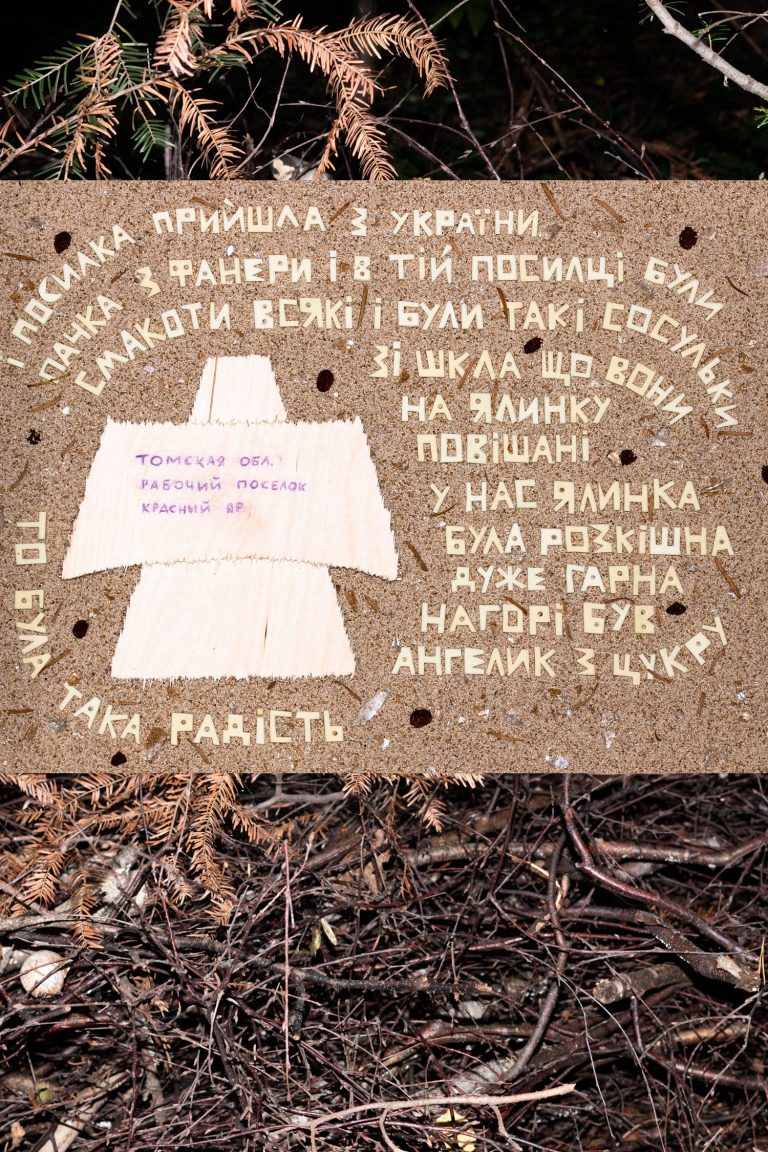 І ПОСИЛКА ПРИЙШЛА З УКРАЇНИ
ПАЧКА З ФАНЕРИ І В ТІЙ ПОСИЛЦІ БУЛИ
СМАКОТИ ВСЯКІ І БУЛИ ТАКІ СОСУЛЬКИ
ЗІ ШКЛА ЩО ВОНИ
НА ЯЛИНКУ
ПОВІШАНІ
У НАС ЯЛИНКА
БУЛА РОЗКІШНА
ДУЖЕ ГАРНА
НАГОРІ БУВ
АНГЕЛИК З ЦУКРУ
ТО БУЛА ТАКА РАДІСТЬ
ТОМСКАЯ ОБЛ.
РАБОЧИЙ ПОСЕЛОК
КРАСНЫЙ ЯР